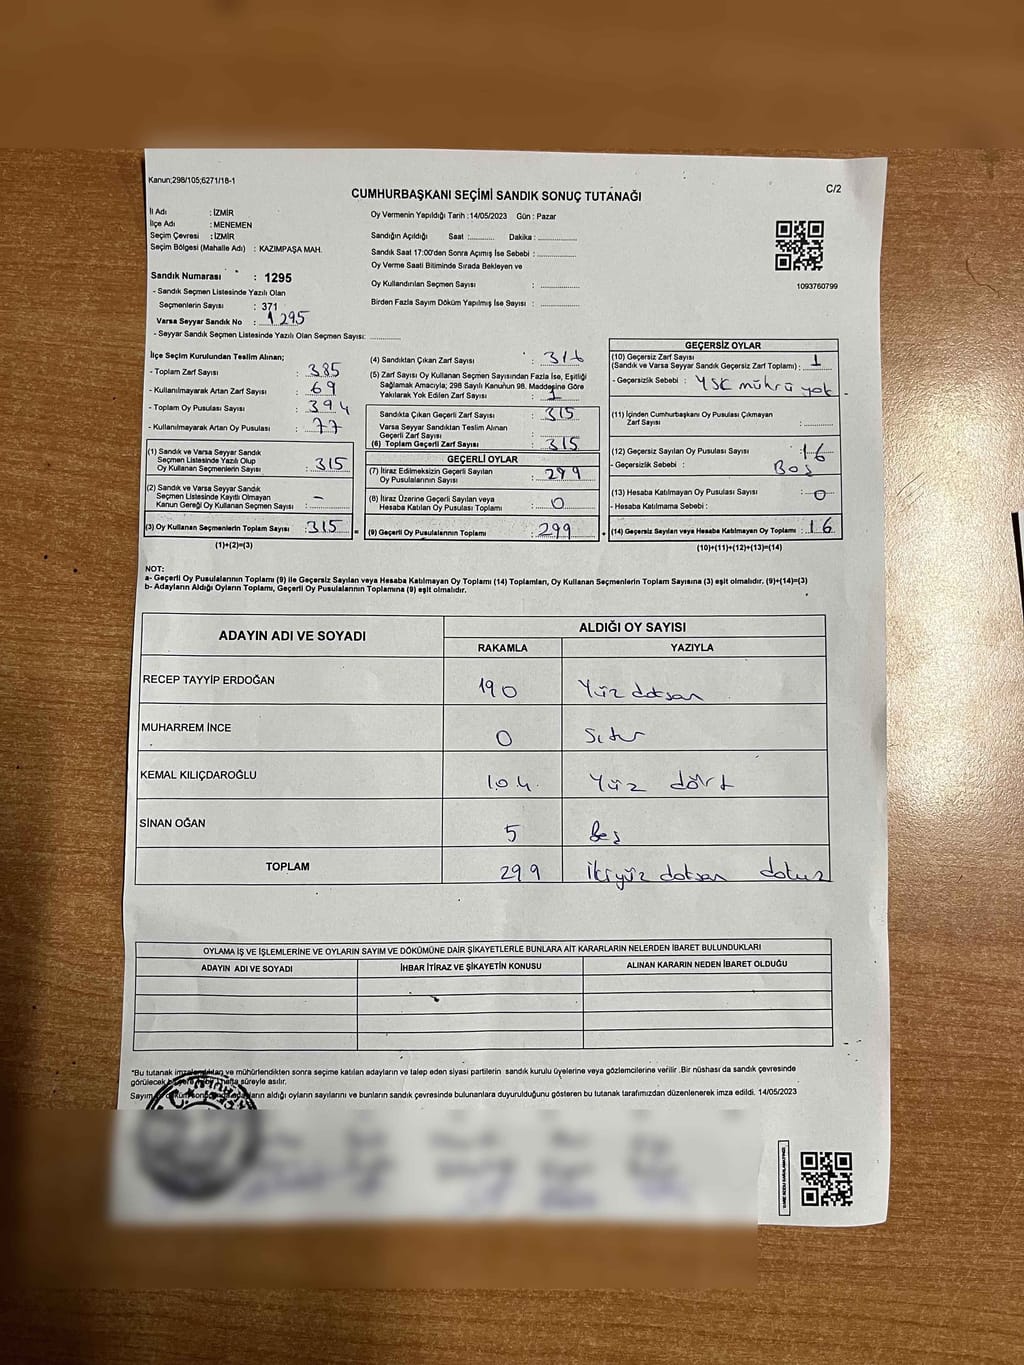 Kanun;298/105;6271/18-1
C/2
CUMHURBAŞKANI SEÇİMİ SANDIK SONUÇ TUTANAĞI
İl Adı : İZMİR
İlçe Adı : MENEMEN
Seçim Çevresi : İZMİR
Seçim Bölgesi (Mahalle Adı) : KAZIMPAŞA MAH.
Sandık Numarası : 1295
- Sandık Seçmen Listesinde Yazılı Olan
Seçmenlerin Sayısı : 371
Varsa Seyyar Sandık No : 1295
- Seyyar Sandık Seçmen Listesinde Yazılı Olan Seçmen Sayısı:
Oy Vermenin Yapıldığı Tarih :14/05/2023 Gün : Pazar
Sandığın Açıldığı Saat : Dakika :
Sandık Saat 17:00'den Sonra Açımış İse Sebebi :
Oy Verme Saati Bitiminde Sırada Bekleyen ve
Oy Kullandırılan Seçmen Sayısı :
Birden Fazla Sayım Döküm Yapılmış İse Sayısı :
1093760799
İlçe Seçim Kurulundan Teslim Alınan;
- Toplam Zarf Sayısı : 385
- Kullanılmayarak Artan Zarf Sayısı : 69
- Toplam Oy Pusulası Sayısı : 394
- Kullanılmayarak Artan Oy Pusulası : 77
(1) Sandık ve Varsa Seyyar Sandık
Seçmen Listesinde Yazılı Olup
Oy Kullanan Seçmenlerin Sayısı : 315
(2) Sandık ve Varsa Seyyar Sandık
Seçmen Listesinde Kayıtlı Olmayan
Kanun Gereği Oy Kullanan Seçmen Sayısı : -
(3) Oy Kullanan Seçmenlerin Toplam Sayısı : 315 =
(1)+(2)=(3)
(4) Sandıktan Çıkan Zarf Sayısı : 316
(5) Zarf Sayısı Oy Kullanan Seçmen Sayısından Fazla İse, Eşitliği
Sağlamak Amacıyla; 298 Sayılı Kanunun 98. Maddesine Göre
Yakılarak Yok Edilen Zarf Sayısı : 1
Sandıkta Çıkan Geçerli Zarf Sayısı : 315
Varsa Seyyar Sandıktan Teslim Alınan
Geçerli Zarf Sayısı :
(6) Toplam Geçerli Zarf Sayısı : 315
GEÇERLİ OYLAR
(7) İtiraz Edilmeksizin Geçerli Sayılan
Oy Pusulalarının Sayısı : 299
(8) İtiraz Üzerine Geçerli Sayılan veya
Hesaba Katılan Oy Pusulası Toplamı : 0
(9) Geçerli Oy Pusulalarının Toplamı : 299 +
GEÇERSİZ OYLAR
(10) Geçersiz Zarf Sayısı
(Sandık ve Varsa Seyyar Sandık Geçersiz Zarf Toplamı) : 1
- Geçersizlik Sebebi : YSK mührü yok
(11) İçinden Cumhurbaşkanı Oy Pusulası Çıkmayan
Zarf Sayısı :
(12) Geçersiz Sayılan Oy Pusulası Sayısı : 16
- Geçersizlik Sebebi : Boş
(13) Hesaba Katılmayan Oy Pusulası Sayısı : 0
- Hesaba Katılmama Sebebi :
(14) Geçersiz Sayılan veya Hesaba Katılmayan Oy Toplamı : 16
(10)+(11)+(12)+(13)=(14)
NOT:
a- Geçerli Oy Pusulalarının Toplamı (9) ile Geçersiz Sayılan veya Hesaba Katılmayan Oy Toplamı (14) Toplamları, Oy Kullanan Seçmenlerin Toplam Sayısına (3) eşit olmalıdır. (9)+(14)=(3)
b- Adayların Aldığı Oyların Toplamı, Geçerli Oy Pusulalarının Toplamına (9) eşit olmalıdır.
ADAYIN ADI VE SOYADI
ALDIĞI OY SAYISI
RAKAMLA YAZIYLA
RECEP TAYYİP ERDOĞAN 190 Yüz doksan
MUHARREM İNCE 0 Sıfır
KEMAL KILIÇDAROĞLU 104 Yüz dört
SİNAN OĞAN 5 Beş
TOPLAM 299 İkiyüz doksan dokuz
OYLAMA İŞ VE İŞLEMLERİNE VE OYLARIN SAYIM VE DÖKÜMÜNE DAİR ŞİKAYETLERLE BUNLARA AİT KARARLARIN NELERDEN İBARET BULUNDUKLARI
ADAYIN ADI VE SOYADI İHBAR İTİRAZ VE ŞİKAYETİN KONUSU ALINAN KARARIN NEDEN İBARET OLDUĞU
*Bu tutanak ve mühürlendikten sonra seçime katılan adayların ve talep eden siyasi partilerin sandık kurulu üyelerine veya gözlemcilerine verilir .Bir nüshası da sandık çevresinde
görülecek süreyle asılır.
aldığı oyların sayılarını ve bunların sandık çevresinde bulunanlara duyurulduğunu gösteren bu tutanak tarafımızdan düzenlenerek imza edildi. 14/05/2023